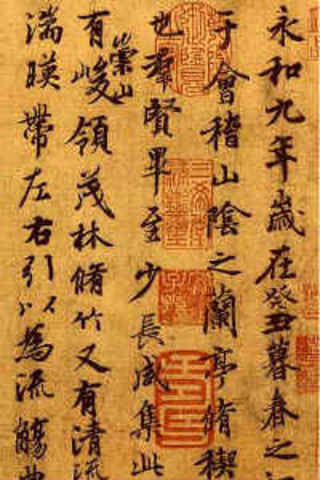 永和九年歲在癸丑暮春之初
于會稽山陰之蘭亭脩稧
也羣賢畢至少長咸集此
有崇山峻領茂林脩竹又有清流
湍暎帶左右引以為流觴曲